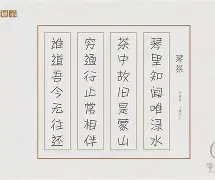 琴茶
琴里知闻唯渌水
茶中故旧是蒙山
穷通行止常相伴
谁道吾今无往还